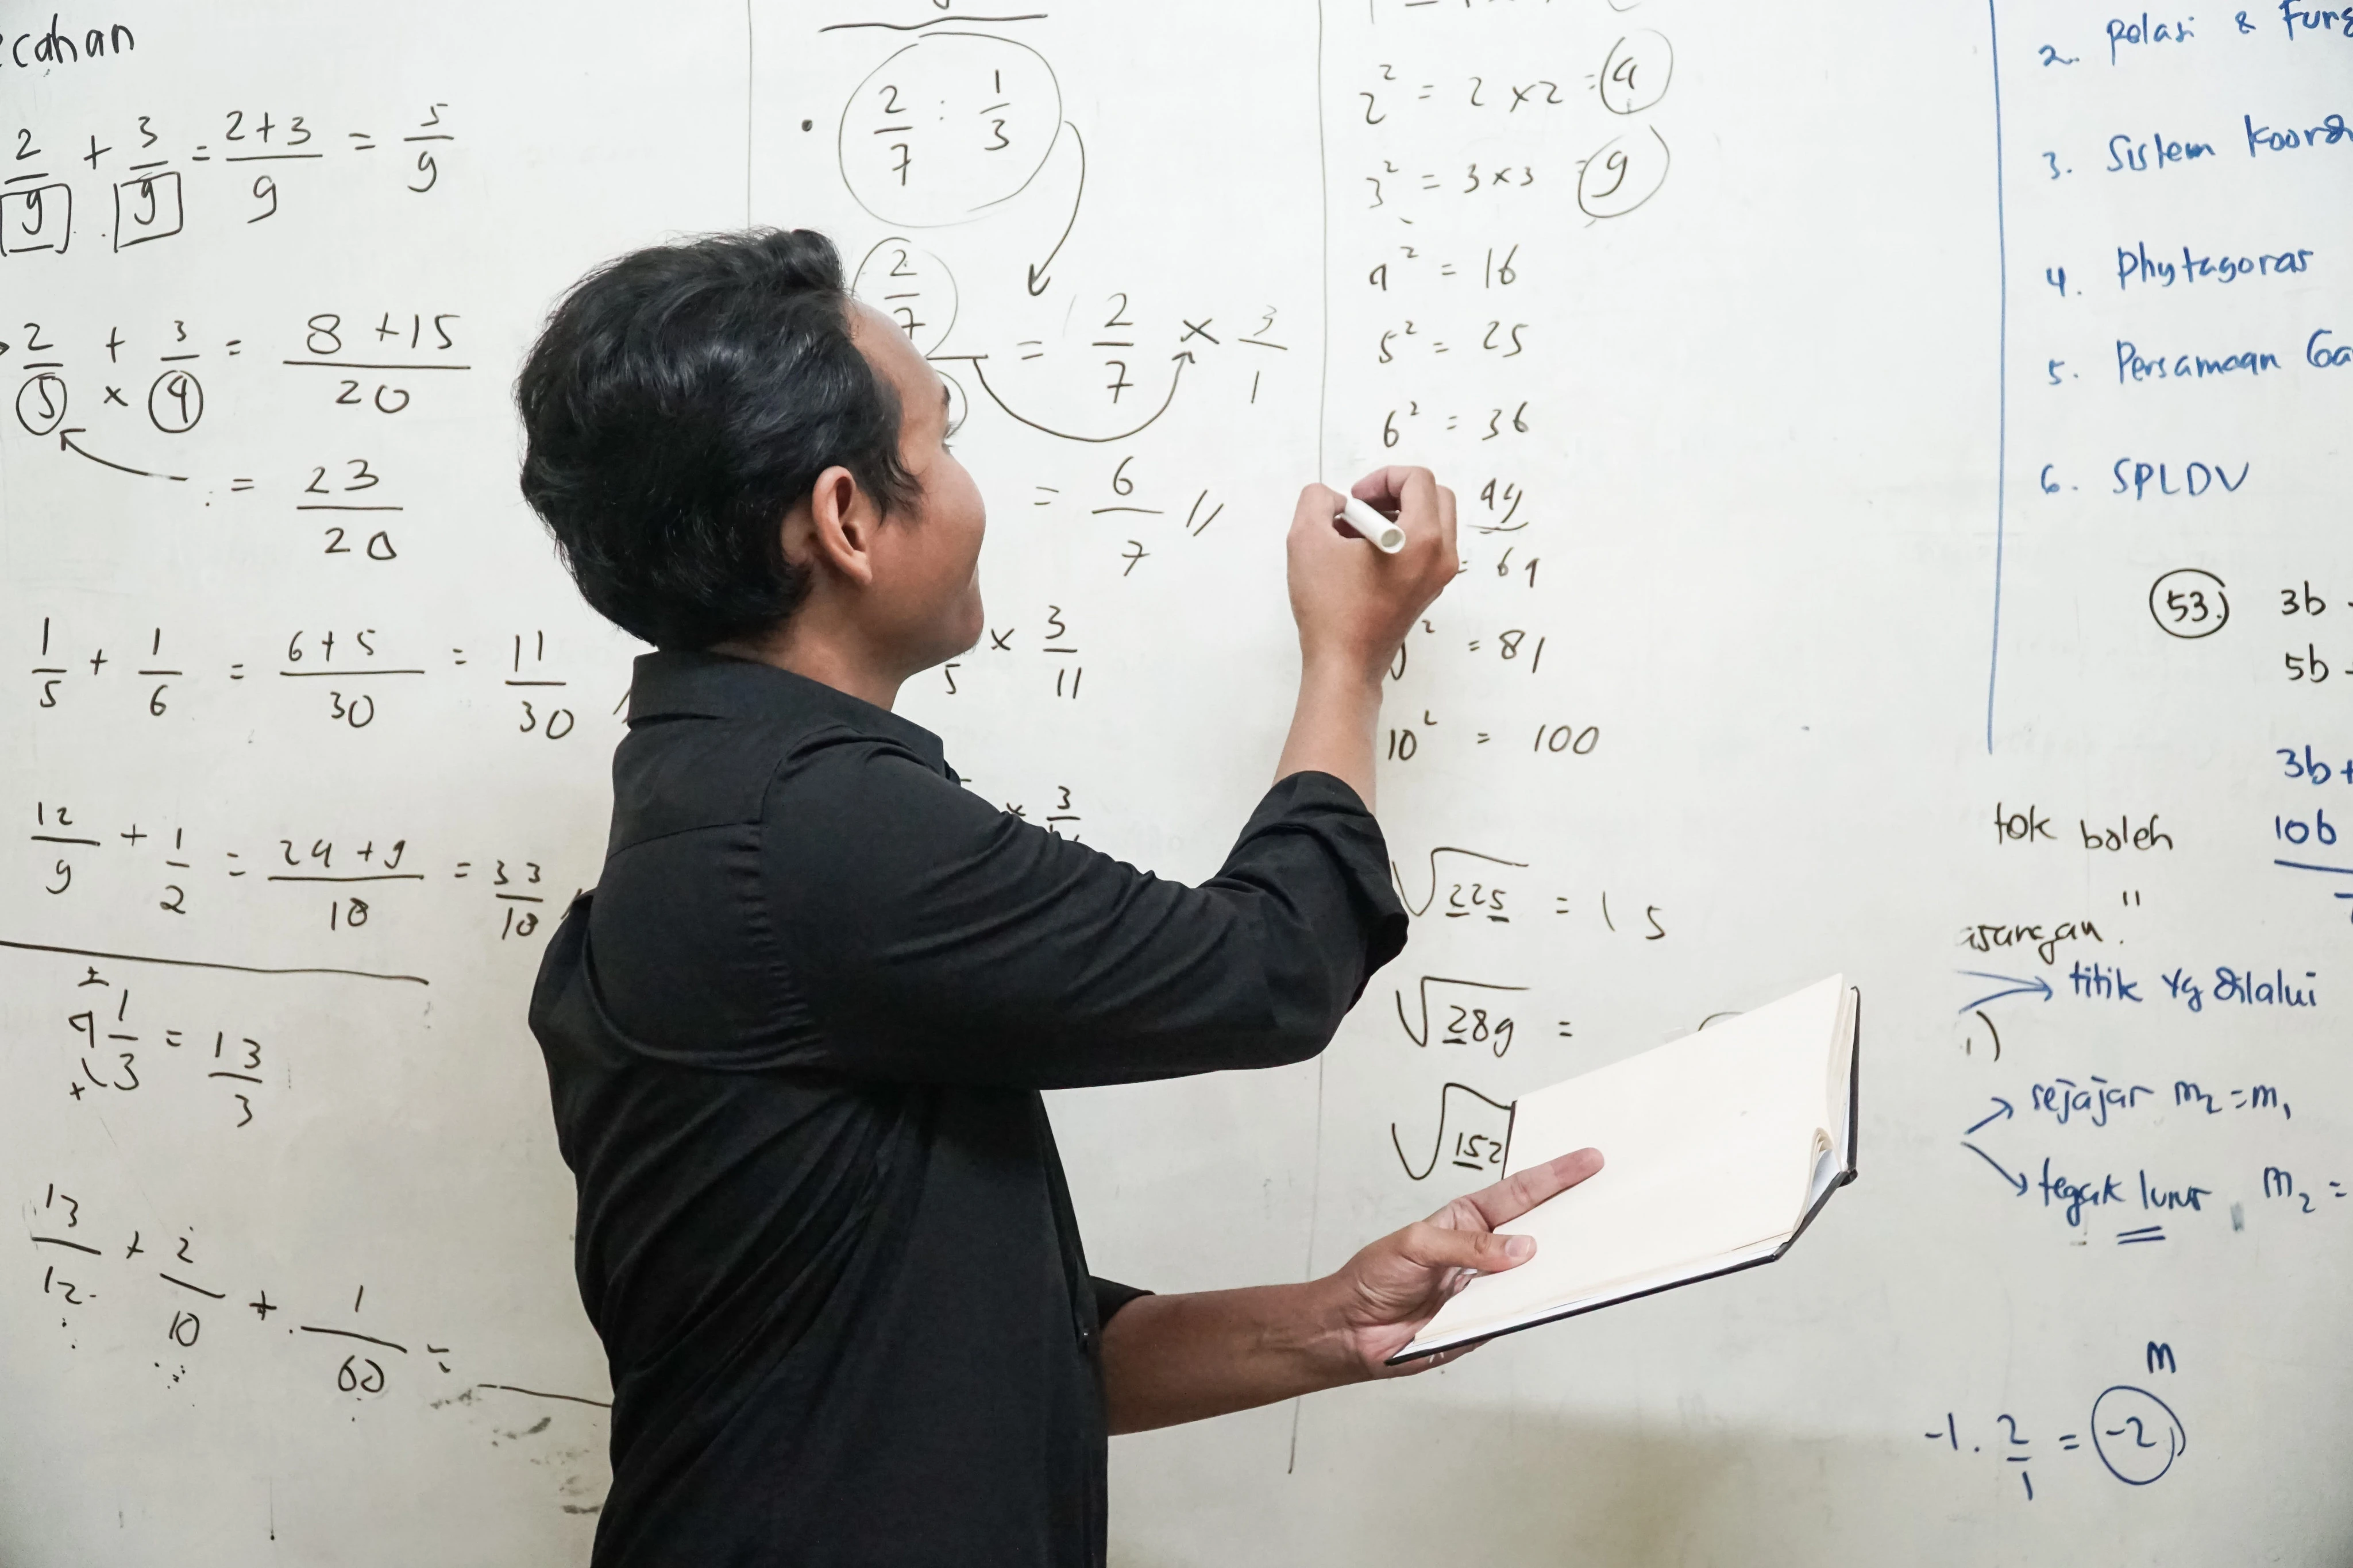 ecahan
2/9 + 3/9 = 2+3/9 = 5/9
2/5 + 3/4 = 8 +15/20
×
= 23/20
1/5 + 1/6 = 6+5/30 = 11/30
12/9 + 1/2 = 24+9/18 = 33/18
4 1/3 = 13/3
13/12 + 2/10 + 1/60 =
2/7 : 1/3
2/7 = 2/7 × 3/1
= 6/7 //
5 × 3/11
× 3
2² = 2 × 2 = 4
3² = 3 × 3 = 9
4² = 16
5² = 25
6² = 36
49
= 64
² = 81
10² = 100
√225 = 15
√289 =
√152
2. Relasi & Fungs
3. Sistem Koord
4. Phytagoras
5. Persamaan Ga
6. SPLDV
53. 3b
5b
3b+
10b
tok boleh
asangan."
titik yg dilalui
sejajar m₂=m₁
tegak lurus m₂ =
m
-1 . 2/1 = -2